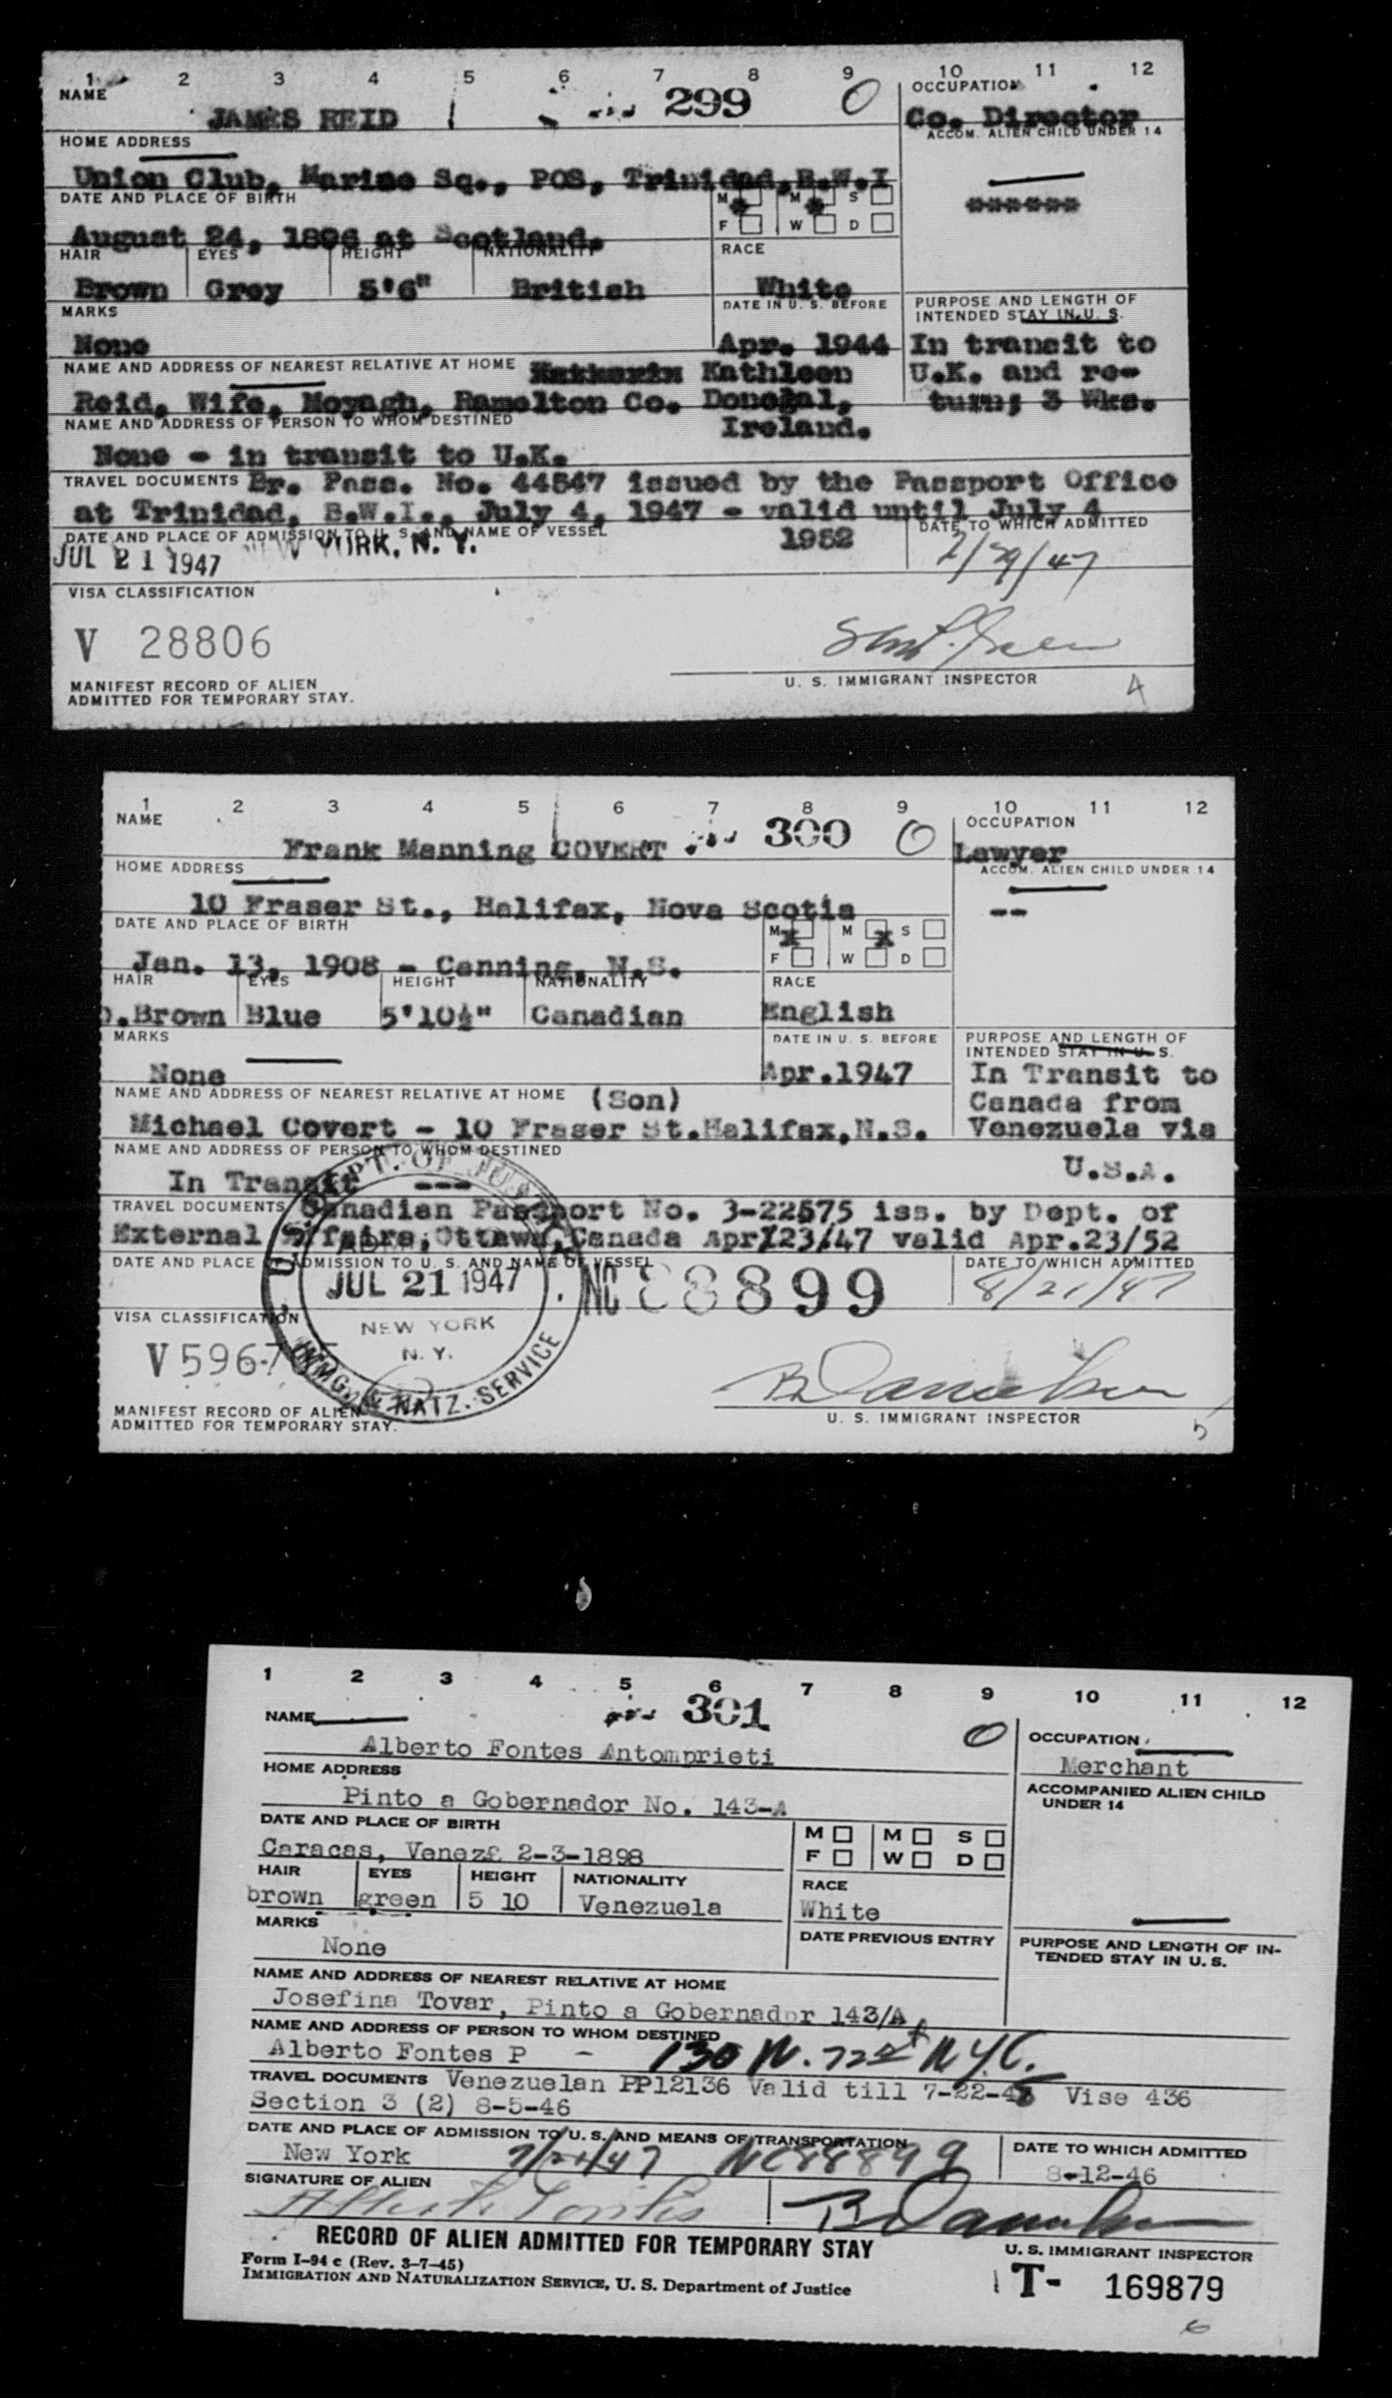 1 2 3 4 5 6 7 8 9 10 11 12
NAME JAMES REID 299 O OCCUPATION
Co. Director
HOME ADDRESS ACCOM. ALIEN CHILD UNDER 14
Union Club, Marine Sq., POS, Trinidad, B.W.I
DATE AND PLACE OF BIRTH M M S ******
August 24, 1896 at Scotland. F W D
HAIR EYES HEIGHT NATIONALITY RACE
Brown Grey 5'6" British White
MARKS DATE IN U. S. BEFORE PURPOSE AND LENGTH OF
INTENDED STAY IN U. S.
None Apr. 1944 In transit to
NAME AND ADDRESS OF NEAREST RELATIVE AT HOME Kathleen U.K. and re-
Reid, Wife, Moyagh, Ramelton Co. Donegal, turn; 3 Wks.
NAME AND ADDRESS OF PERSON TO WHOM DESTINED Ireland.
None - in transit to U.K.
TRAVEL DOCUMENTS Br. Pass. No. 44547 issued by the Passport Office
at Trinidad, B.W.I., July 4, 1947 - valid until July 4
DATE AND PLACE OF ADMISSION TO U. S. AND NAME OF VESSEL 1952 DATE TO WHICH ADMITTED
JUL 21 1947 NEW YORK, N. Y. 7/29/47
VISA CLASSIFICATION
V 28806
U. S. IMMIGRANT INSPECTOR 4
MANIFEST RECORD OF ALIEN
ADMITTED FOR TEMPORARY STAY.
1 2 3 4 5 6 7 8 9 10 11 12
NAME Frank Manning COVERT 300 O OCCUPATION
Lawyer
HOME ADDRESS ACCOM. ALIEN CHILD UNDER 14
10 Fraser St., Halifax, Nova Scotia --
DATE AND PLACE OF BIRTH M M S
Jan. 13, 1908 - Canning, N.S. F W D
HAIR EYES HEIGHT NATIONALITY RACE
D.Brown Blue 5'10½" Canadian English
MARKS DATE IN U. S. BEFORE PURPOSE AND LENGTH OF
INTENDED STAY IN U. S.
None Apr.1947 In Transit to
NAME AND ADDRESS OF NEAREST RELATIVE AT HOME (Son) Canada from
Michael Covert - 10 Fraser St.Halifax,N.S. Venezuela via
NAME AND ADDRESS OF PERSON TO WHOM DESTINED U.S.A.
In Transit ---
TRAVEL DOCUMENTS Canadian Passport No. 3-22575 iss. by Dept. of
External Affairs, Ottawa, Canada Apr 23/47 valid Apr.23/52
DATE AND PLACE OF ADMISSION TO U. S. AND NAME OF VESSEL DATE TO WHICH ADMITTED
U. S. DEPT. OF JUSTICE
ADMITTED
JUL 21 1947
NEW YORK
N. Y.
IMMG. & NATZ. SERVICE
NC 88899 8/21/47
VISA CLASSIFICATION
V 5967
U. S. IMMIGRANT INSPECTOR 5
MANIFEST RECORD OF ALIEN
ADMITTED FOR TEMPORARY STAY.
1 2 3 4 5 6 7 8 9 10 11 12
301 O
NAME OCCUPATION
Alberto Fontes Antomprieti Merchant
HOME ADDRESS ACCOMPANIED ALIEN CHILD
UNDER 14
Pinto a Gobernador No. 143-A
DATE AND PLACE OF BIRTH M M S
Caracas, Venez 2-3-1898 F W D
HAIR EYES HEIGHT NATIONALITY RACE
brown green 5 10 Venezuela White
MARKS DATE PREVIOUS ENTRY PURPOSE AND LENGTH OF IN-
TENDED STAY IN U. S.
None
NAME AND ADDRESS OF NEAREST RELATIVE AT HOME
Josefina Tovar, Pinto a Gobernador 143/A
NAME AND ADDRESS OF PERSON TO WHOM DESTINED
Alberto Fontes P - 130 W. 72 st N.Y.C.
TRAVEL DOCUMENTS Venezuelan PP12136 Valid till 7-22-48 Vise 436
Section 3 (2) 8-5-46
DATE AND PLACE OF ADMISSION TO U. S. AND MEANS OF TRANSPORTATION DATE TO WHICH ADMITTED
New York 7/21/47 NC88899 8-12-46
SIGNATURE OF ALIEN
Alberto Fontes
RECORD OF ALIEN ADMITTED FOR TEMPORARY STAY U. S. IMMIGRANT INSPECTOR
Form I-94 c (Rev. 3-7-45)
IMMIGRATION AND NATURALIZATION SERVICE, U. S. Department of Justice
T- 169879
6